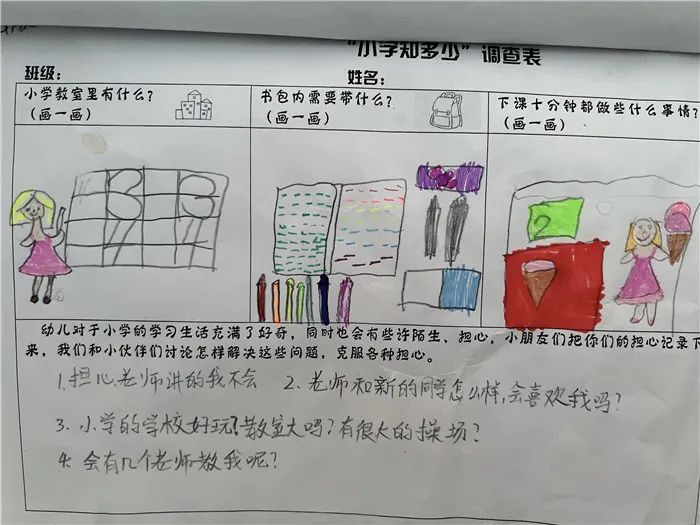 "小学知多少"调查表
班级： 姓名：
小学教室里有什么？
（画一画）
书包内需要带什么？
（画一画）
下课十分钟都做些什么事情？
（画一画）
3 3
2
幼儿对于小学的学习生活充满了好奇，同时也会有些许陌生、担心，小朋友们把你们的担心记录下
来，我们和小伙伴们讨论怎样解决这些问题，克服各种担心。
1.担心老师讲的我不会 2.老师和新的同学怎么样，会喜欢我吗？
3.小学的学校好玩？教室大吗？有很大的操场？
4.会有几个老师教我呢？